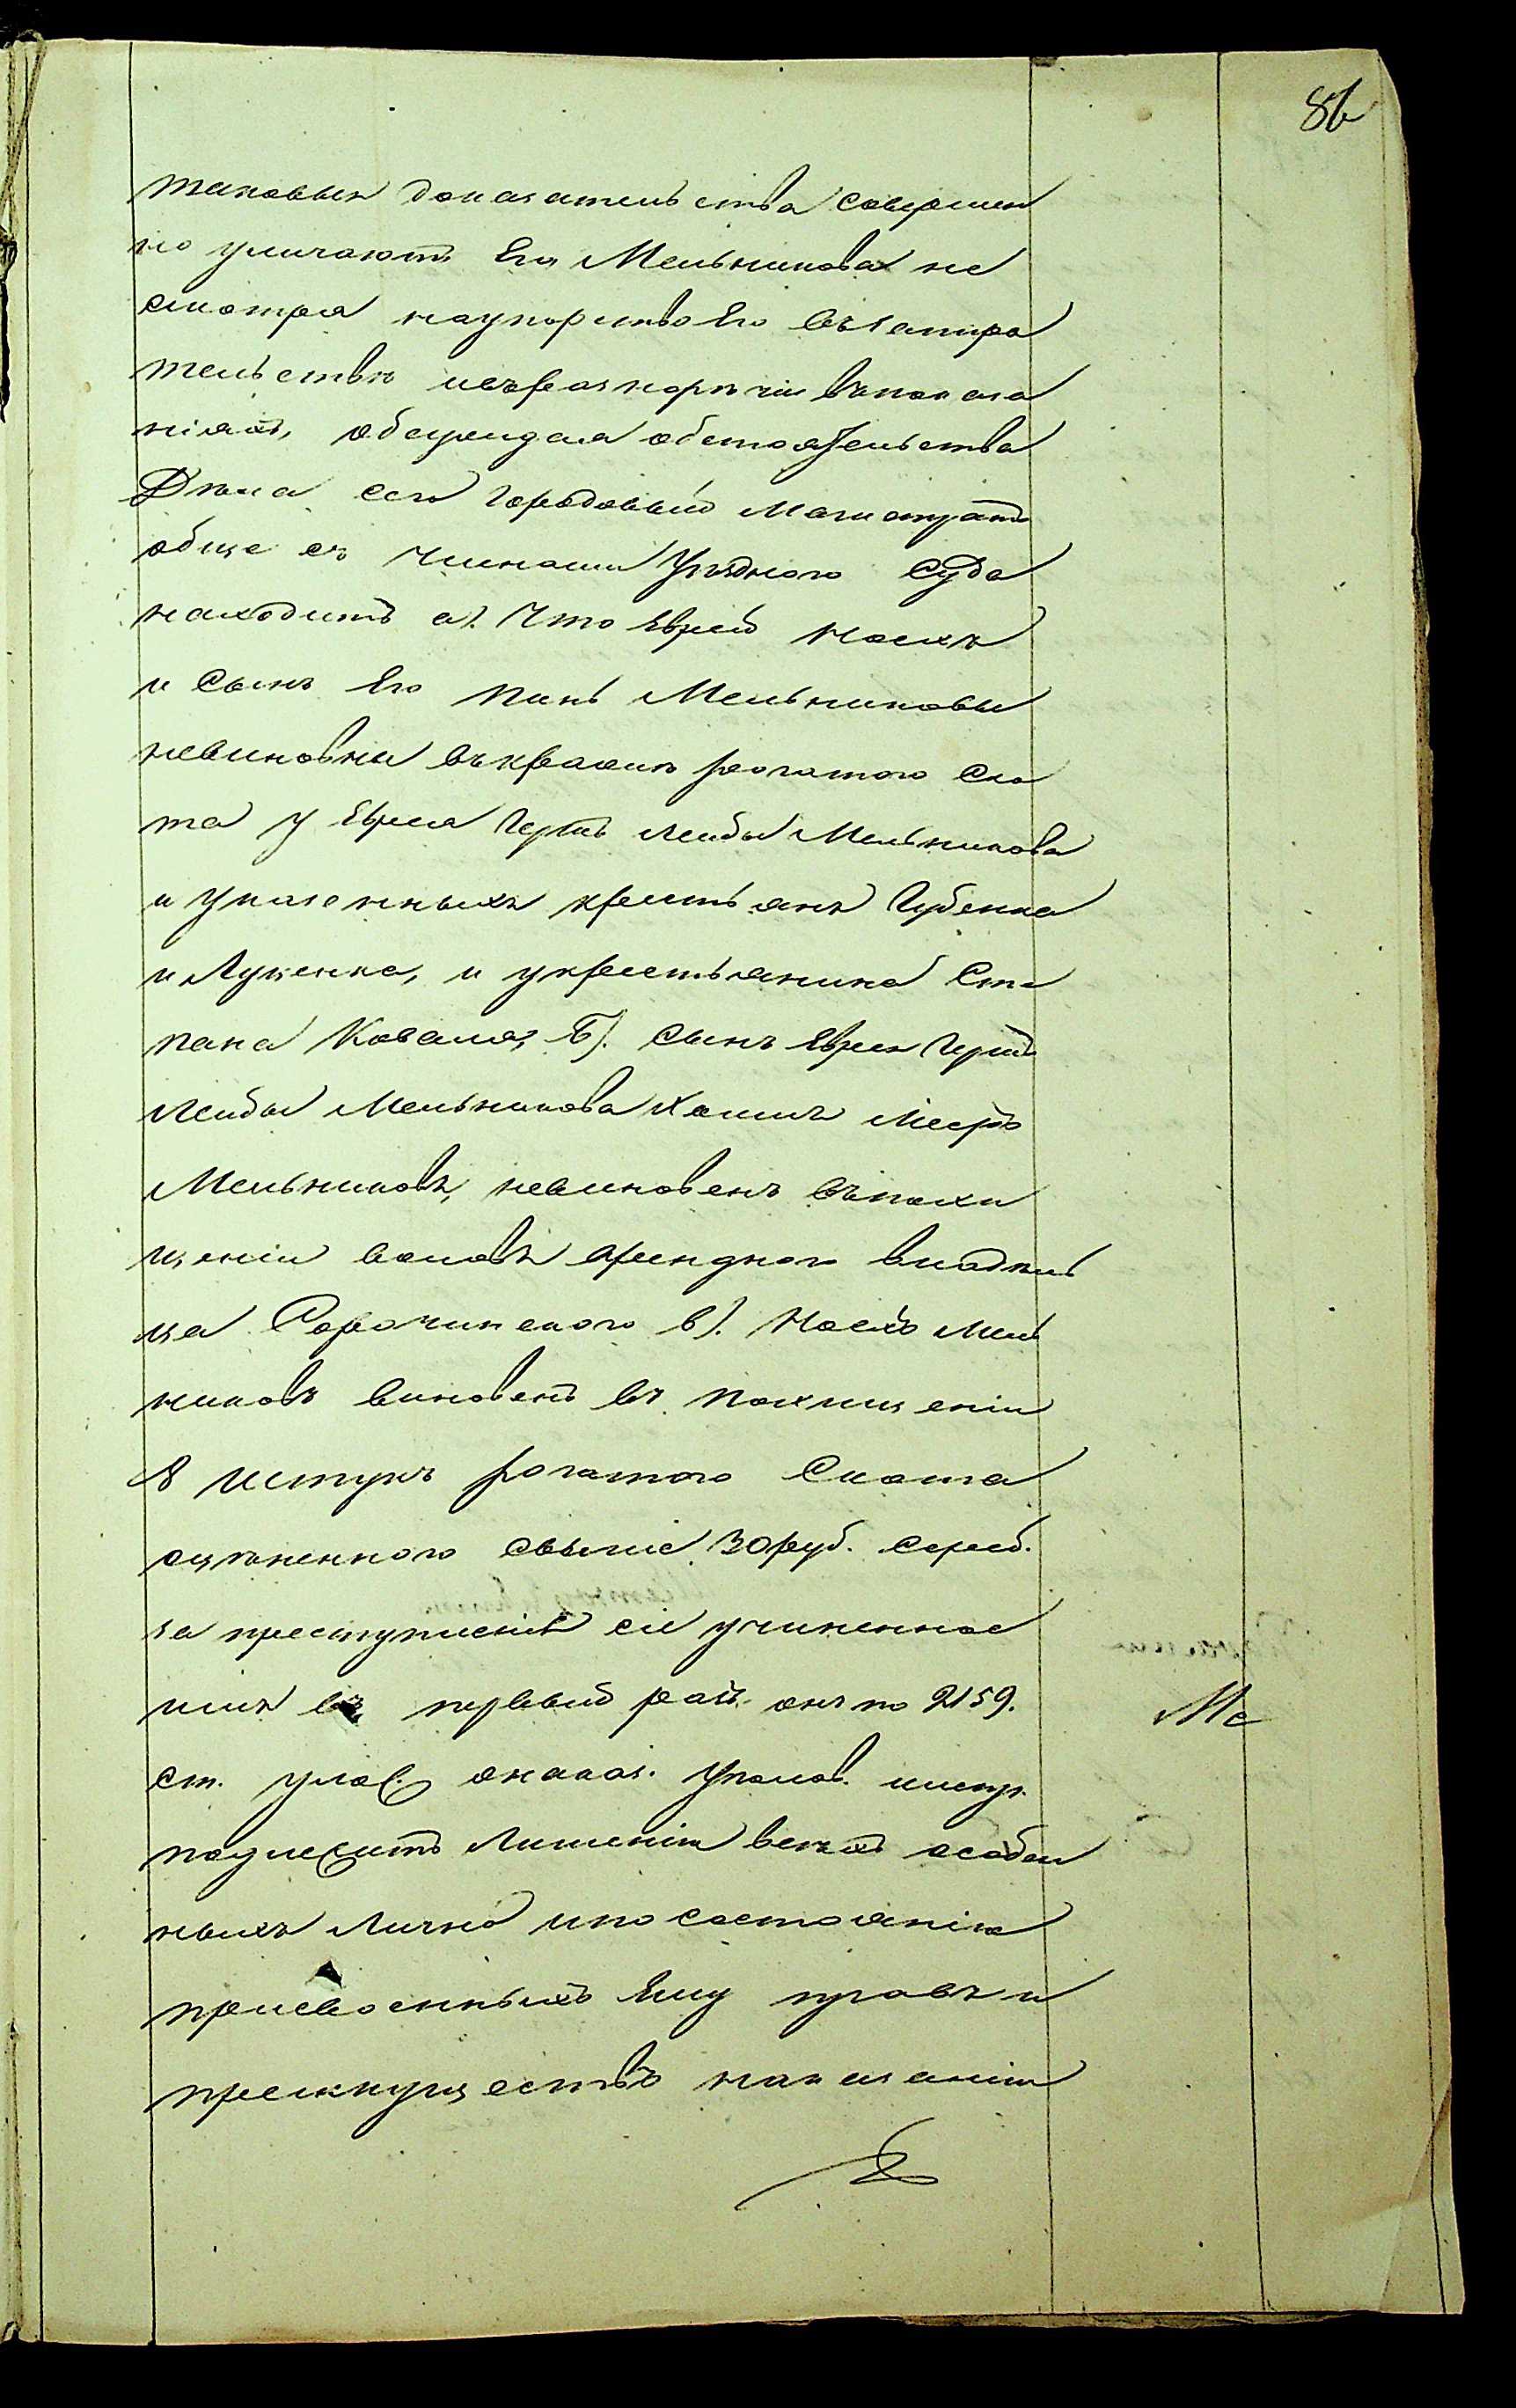 86
таковыя доказательства совершен
но уличаютъ Его Мельникова не
смотря наупорство Его въ запира
тельствѣ и въ разнорѣчіи въпоказа
ніяхъ, обсуждая обстоятельства
Дѣла сего Городовый Магистратъ
обще съ членами Уѣзднаго Суда
находитъ а). Что Еврей Носхъ
и Сынъ Его Пинь Мельниковы
невиновны въкражи рогатого ско
та у Еврея Герть Лейбы Мельникова
и Указенныхъ крестьянъ Губенка
и Луценка, и укрестьянина Сте
пана Коваля, Б). Сынъ Еврея Герть
Лейбы Мельникова Хаимъ Мееръ
Мельниковъ, невиновенъ въпохи
щеніи воловъ арендного владѣль
ца Сорочинского в). Носхъ Мель
никовъ виновенъ въ похищеніи
8 штукъ рогатого Скота
оцѣненного свыше 30 руб. сереб.
за преступленіе сіе учиненное
имъ въ первый разъ онъ по 2159.
ст. улож. онаказ. Уголов. и испр.
подлежитъ Лишенію всѣхъ особен
ныхъ Лично и по состоянію
присвоенныхъ Ему правъ и
преимуществъ наказанію